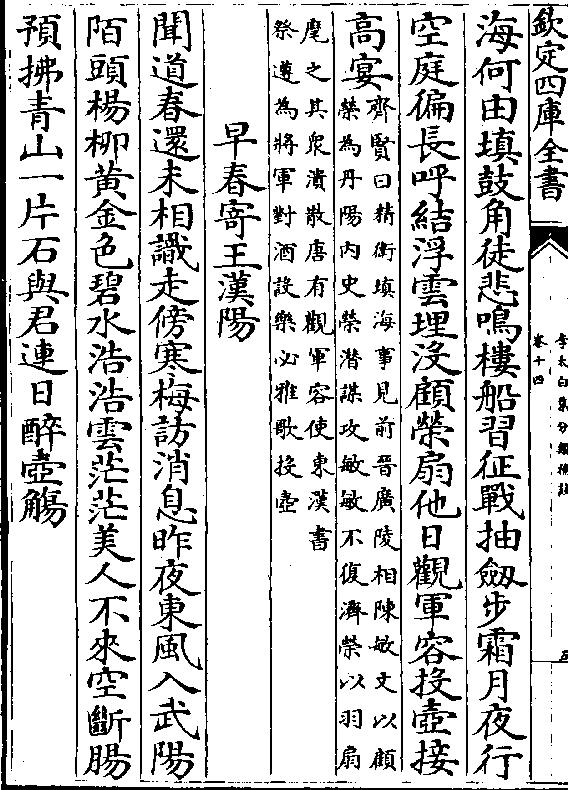 欽定四庫全書
李太白集分類補註
卷十四
海何由填鼓角徒悲鳴樓船習征戰抽劔步霜月夜行
空庭徧長呼結浮雲埋沒顧榮扇他日觀軍容投壺接
高宴
齊賢曰精衛填海事見前晉廣陵相陳敏文以顧
榮為丹陽內史榮潜謀攻敏敏不復濟榮以羽扇
麾之其衆潰散唐有觀軍容使東漢書
祭遵為將軍對酒設樂必雅歌投壺
早春寄王漢陽
聞道春還未相識走傍寒梅訪消息昨夜東風入武陽
陌頭楊柳黃金色碧水浩浩雲茫茫美人不來空斷腸
預拂青山一片石與君連日醉壺觴